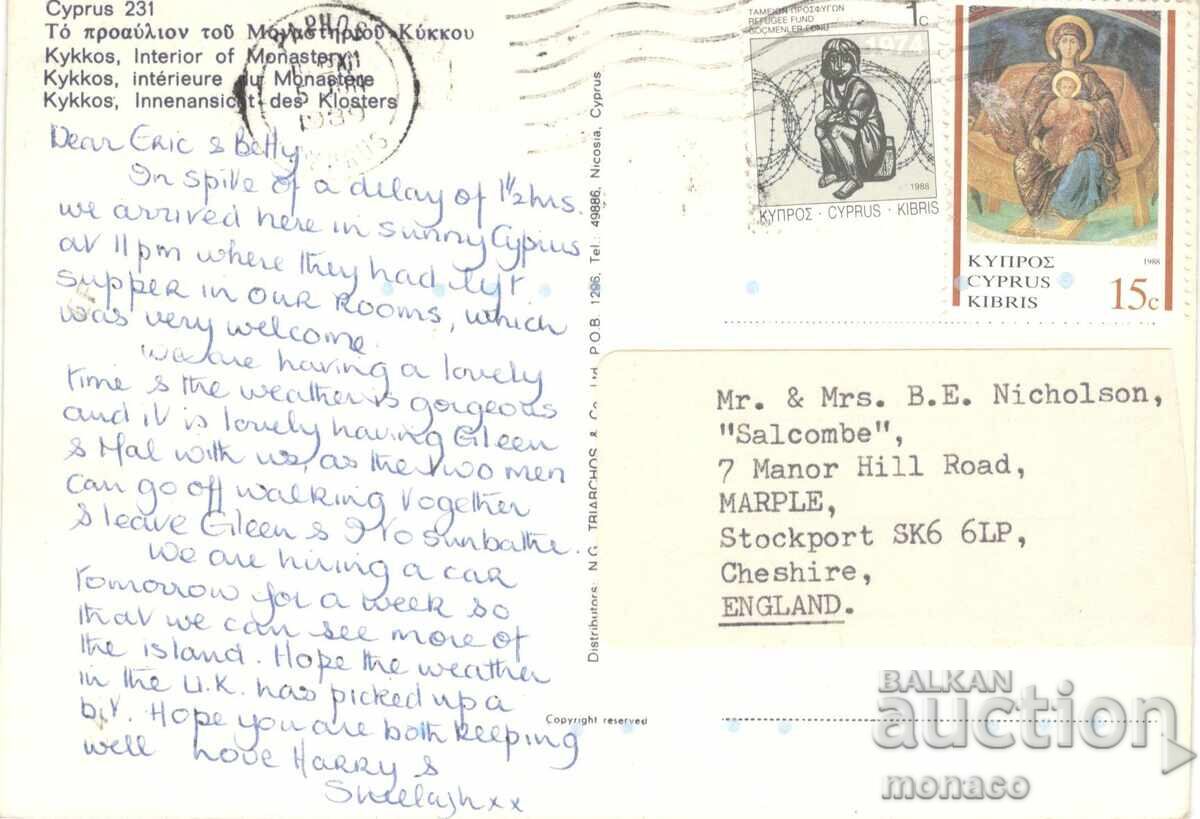 Cyprus 231
Τό προαύλιον τοῦ Μοναστηριοῦ Κύκκου
Kykkos, Interior of Monastery
Kykkos, intérieure du Monastère
Kykkos, Innenansicht des Klosters
1989
Dear Eric & Betty
In spite of a delay of 1½hrs.
we arrived here in sunny Cyprus
at 11pm where they had left
supper in our rooms, which
was very welcome.
We are having a lovely
time & the weather is gorgeous
and it is lovely having Eileen
& Mal with us, as the two men
can go off walking together
& leave Eileen & I to sunbathe.
We are hiring a car
tomorrow for a week so
that we can see more of
the island. Hope the weather
in the U.K. has picked up a
bit. Hope you are both keeping
well Love Harry &
Sheelagh xx
Distributors: N.G. TRIARCHOS & Co. Ltd, P.O.B. 1296, Tel.: 49886, Nicosia, Cyprus
Copyright reserved
ΤΑΜΕΙΟΝ ΠΡΟΣΦΥΓΩΝ
REFUGEE FUND
GÖÇMENLER FONU
1c
1974
1988
ΚΥΠΡΟΣ · CYPRUS · KIBRIS
ΚΥΠΡΟΣ
CYPRUS
KIBRIS
1988
15c
Mr. & Mrs. B.E. Nicholson,
"Salcombe",
7 Manor Hill Road,
MARPLE,
Stockport SK6 6LP,
Cheshire,
ENGLAND.
BALKAN
auction
monaco